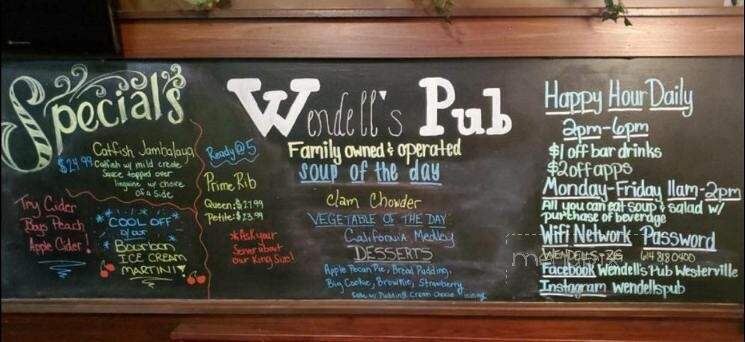 Specials
Catfish Jambalaya
$24.99 Catfish w/ mild creole
Sauce topped over
linguine w/ choice
of a side
Try Cider
Boys Peach
Apple Cider!
COOL OFF
w/ our
Bourbon
ICE CREAM
MARTINI
Ready @ 5
Prime Rib
Queen: $27.99
Petite: $23.99
*Ask your
Server about
our King Size!
Wendell's Pub
Family owned & operated
soup of the day
Clam Chowder
VEGETABLE OF THE DAY
California Medley
DESSERTS
Apple Pecan Pie, Bread Pudding,
Big Cookie, Brownie, Strawberry
Cake w/ Pudding Cream Cheese
Happy Hour Daily
2pm-6pm
$1 off bar drinks
$2 off apps
Monday-Friday 11am-2pm
All you can eat soup & salad w/
purchase of beverage
Wifi Network Password
WENDELLS-2G 614 818 0400
Facebook Wendell's Pub Westerville
Instagram wendellspub